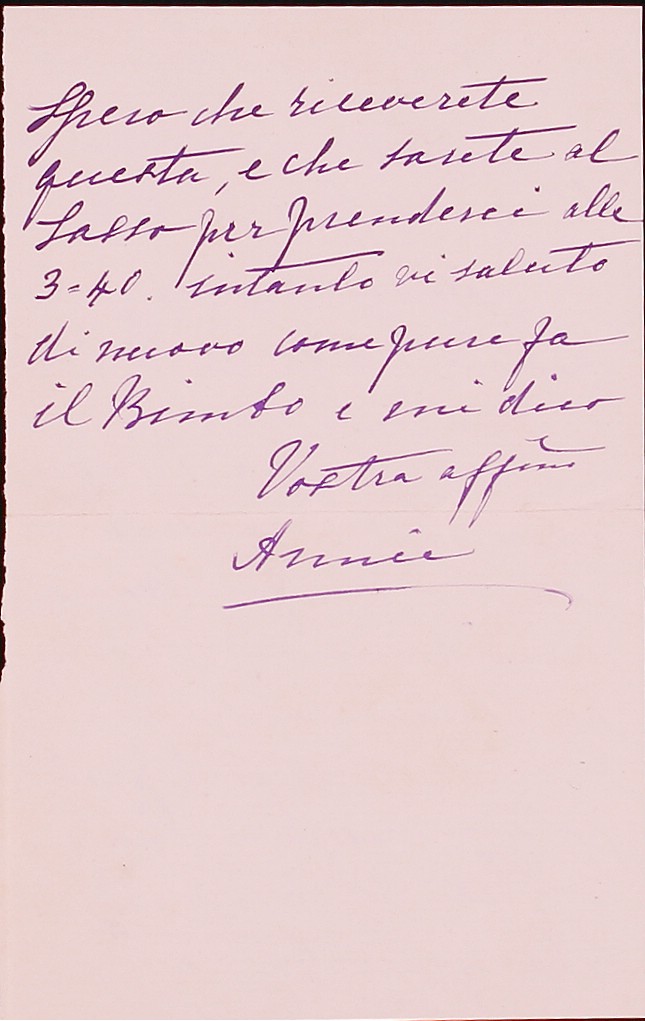 Spero che riceverete
questa, e che sarete al
Sasso per prenderci alle
3=40. intanto vi saluto
di nuovo come pure fa
il Bimbo e mi dico
Vostra affma
Annie